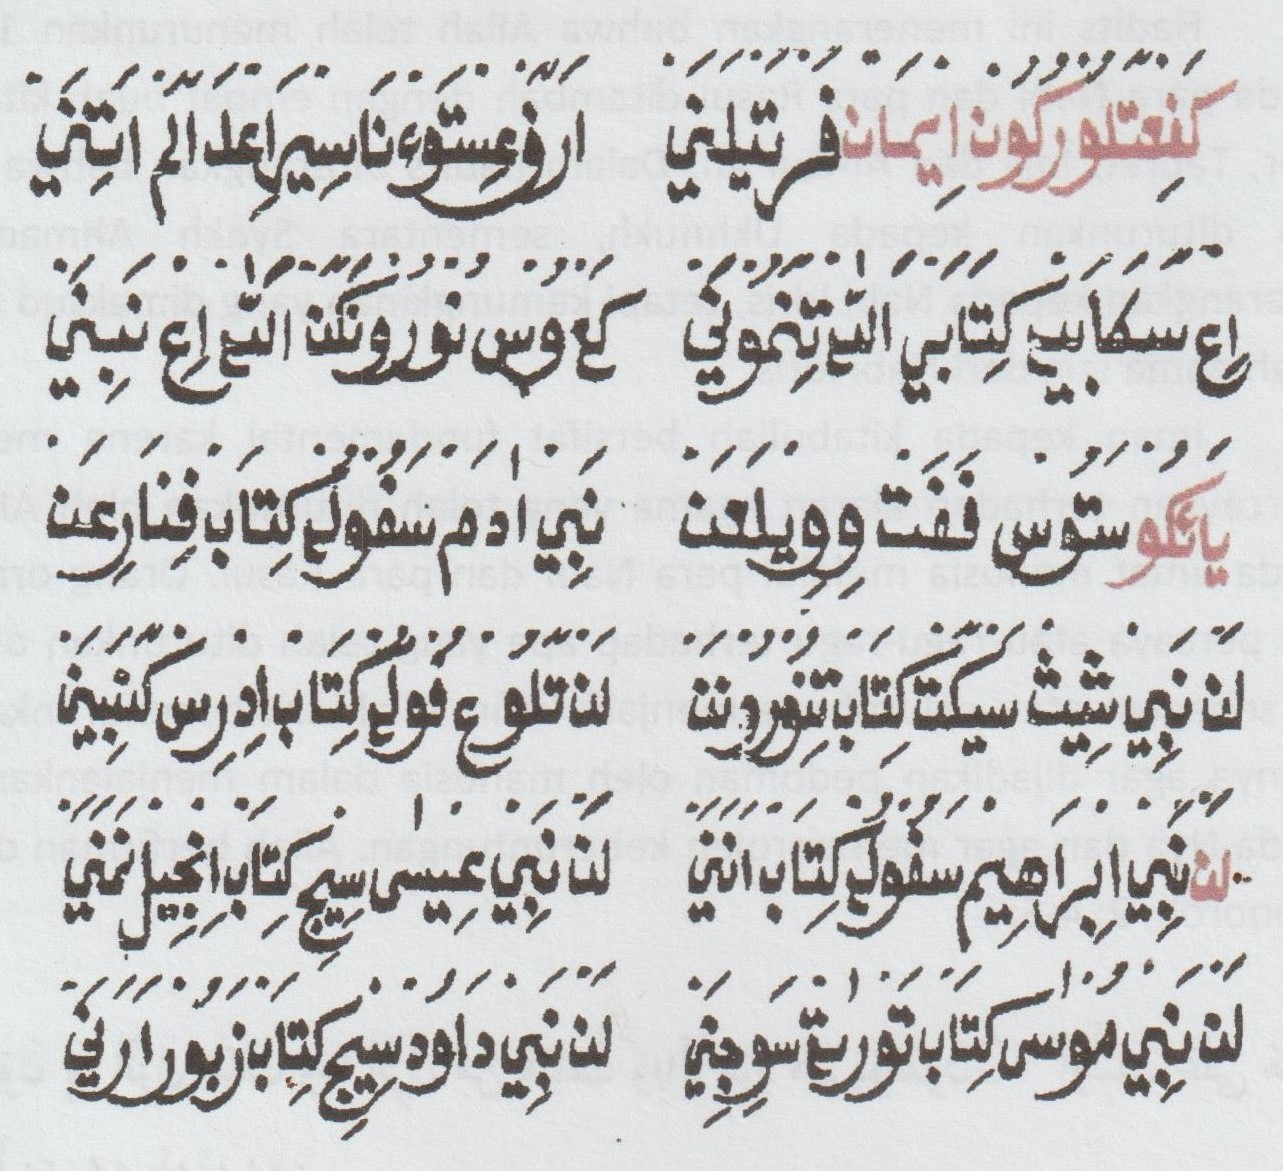 كڤعتلوروكون إيمان ڤرتيلني ارڤ عستوء ناسيرا إعدالم اتيني
إع سكابيه كتابي الله تمولي كع ووس نورونكن الله إع نبيني
ياعكو ستوس ڤڤت وويلعن نبي ادم سڤوله كتاب ڤنارعن
لن نبي شيث سيكت كتاب تنورونن لن تلوع ڤوله كتاب ادرس كنبين
لن نبي ابراهيم سڤوله كتاب انني لن نبي عيسى سيج كتاب انجيل نمني
لن نبي موسى كتاب تورية سوجني لن نبي داود سيج كتاب زبور ارني